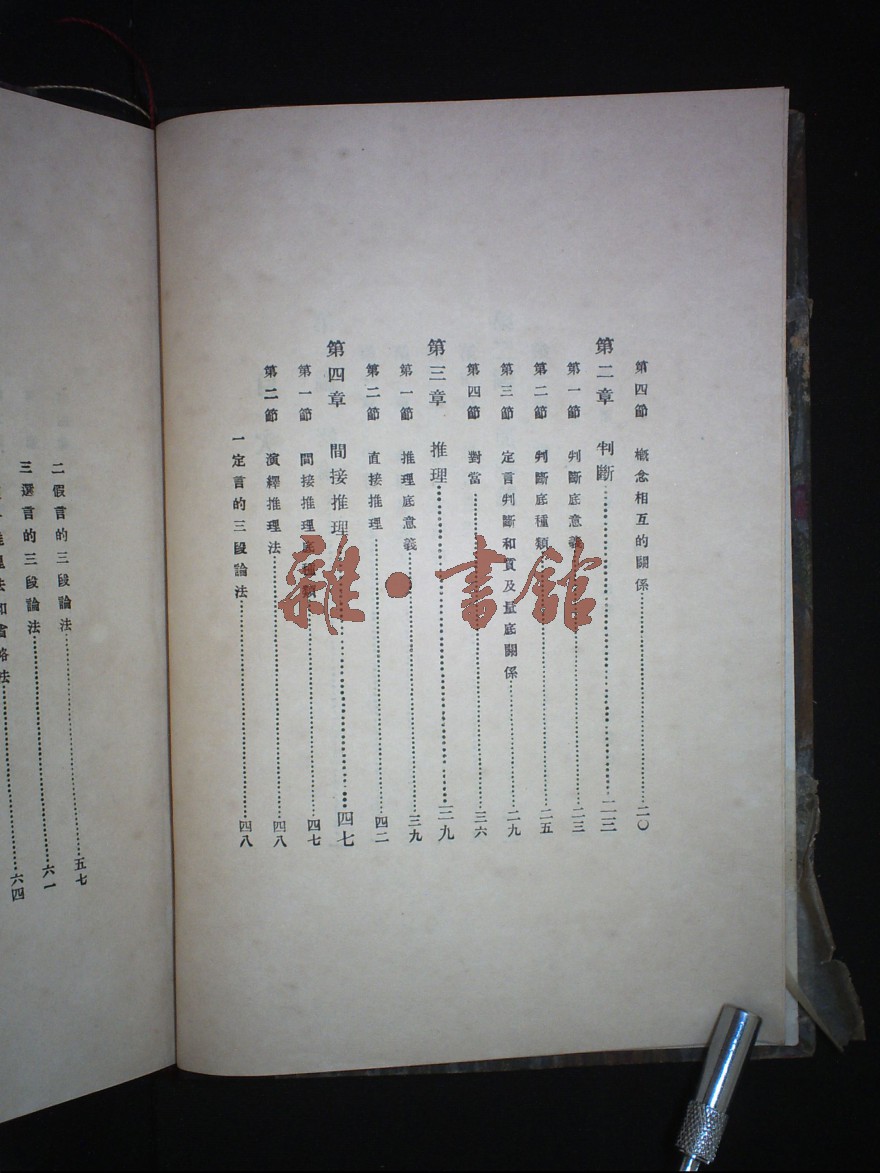 第四節 概念相互的關係 二〇
第二章 判斷 二三
第一節 判斷底意義 二三
第二節 判斷底種類 二五
第三節 定言判斷和質及量底關係 二九
第四節 對當 三六
第三章 推理 三九
第一節 推理底意義 三九
第二節 直接推理 四二
第四章 間接推理 四七
第一節 間接推理底種類 四七
第二節 演繹推理法 四八
一定言的三段論法 四八
二假言的三段論法 五七
三選言的三段論法 六一
推理法和省略法 六四
雜·書館